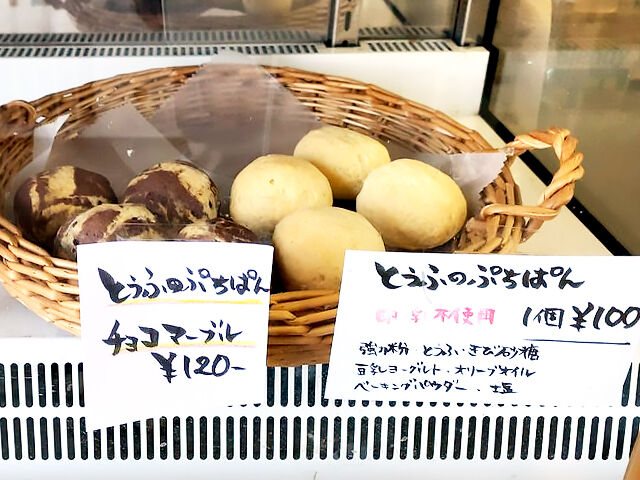 とうふのぷちぱん
チョコマーブル
¥120-
とうふのぷちぱん
卵・乳不使用 1個¥100
強力粉・とうふ・きび砂糖
豆乳ヨーグルト・オリーブオイル
ベーキングパウダー・塩